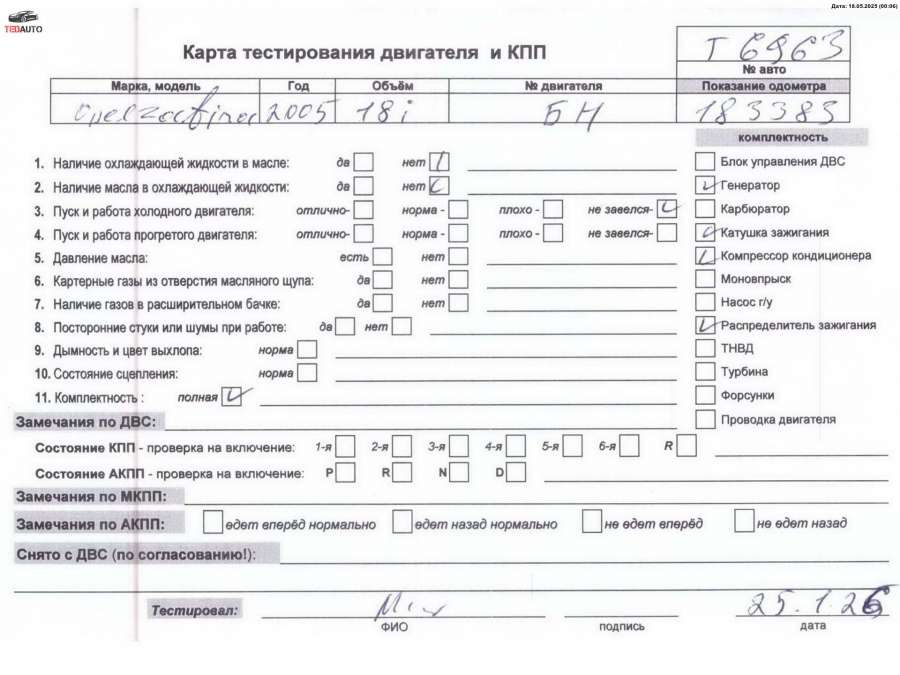 Дата: 18.05.2025 (00:06)
TEDAUTO
Карта тестирования двигателя и КПП
Т 6963
№ авто
Марка, модель Год Объём № двигателя Показание одометра
Opel zafira 2005 18i БН 183383
комплектность
1. Наличие охлаждающей жидкости в масле: да нет
Блок управления ДВС
2. Наличие масла в охлаждающей жидкости: да нет
Генератор
3. Пуск и работа холодного двигателя: отлично- норма - плохо - не завелся-
Карбюратор
4. Пуск и работа прогретого двигателя: отлично- норма - плохо - не завелся-
Катушка зажигания
5. Давление масла: есть нет
Компрессор кондиционера
6. Картерные газы из отверстия масляного щупа: да нет
Моновпрыск
7. Наличие газов в расширительном бачке: да нет
Насос г/у
8. Посторонние стуки или шумы при работе: да нет
Распределитель зажигания
9. Дымность и цвет выхлопа: норма
ТНВД
10. Состояние сцепления: норма
Турбина
11. Комплектность : полная
Форсунки
Замечания по ДВС:
Проводка двигателя
Состояние КПП - проверка на включение: 1-я 2-я 3-я 4-я 5-я 6-я R
Состояние АКПП - проверка на включение: P R N D
Замечания по МКПП:
Замечания по АКПП: едет вперёд нормально едет назад нормально не едет вперёд не едет назад
Снято с ДВС (по согласованию!):
Тестировал: 25.1.26
ФИО подпись дата